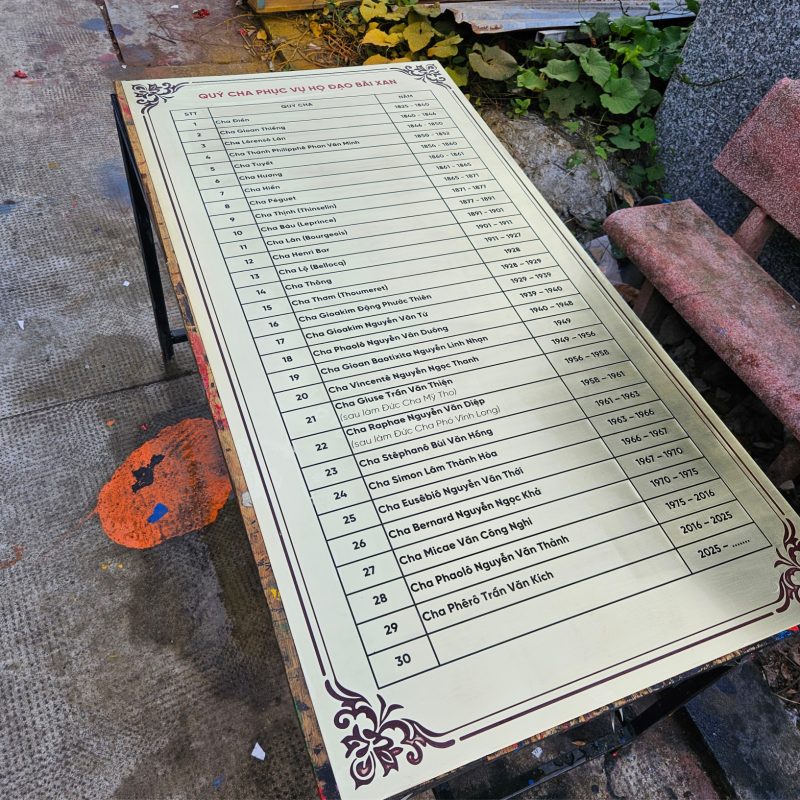 QUÝ CHA PHỤC VỤ HỌ ĐẠO BÃI XAN
STT QUÝ CHA NĂM
1 Cha Điển 1825 - 1840
2 Cha Gioan Thiềng 1840 - 1844
3 Cha Lôrensô Lân 1844 - 1850
4 Cha Thánh Philipphê Phan Văn Minh 1850 - 1852
5 Cha Tuyết 1856 - 1860
6 Cha Hương 1860 - 1861
7 Cha Hiển 1861 - 1865
8 Cha Péguet 1865 - 1871
9 Cha Thịnh (Thinselin) 1871 - 1877
10 Cha Báu (Leprince) 1877 - 1891
11 Cha Lân (Bourgeois) 1891 - 1901
12 Cha Henri Bar 1901 - 1911
13 Cha Lộ (Bellocq) 1911 - 1927
14 Cha Thông 1928
15 Cha Tham (Thoumeret) 1928 - 1929
16 Cha Gioakim Đặng Phước Thiên 1929 - 1939
17 Cha Gioakim Nguyễn Văn Tứ 1939 - 1940
18 Cha Phaolô Nguyễn Văn Dương 1940 - 1948
19 Cha Gioan Baotixita Nguyễn Linh Nhạn 1949
20 Cha Vincentê Nguyễn Ngọc Thanh 1949 - 1956
21 Cha Giuse Trần Văn Thiện 1956 - 1958
(sau làm Đức Cha Mỹ Tho)
22 Cha Raphae Nguyễn Văn Diệp 1958 - 1961
(sau làm Đức Cha Phó Vĩnh Long)
23 Cha Stêphanô Bùi Văn Hồng 1961 - 1963
24 Cha Simon Lâm Thành Hòa 1963 - 1966
25 Cha Eusêbiô Nguyễn Văn Thới 1966 - 1967
26 Cha Bernard Nguyễn Ngọc Khả 1967 - 1970
27 Cha Micae Văn Công Nghi 1970 - 1975
28 Cha Phaolô Nguyễn Văn Thành 1975 - 2016
29 Cha Phêrô Trần Văn Kích 2016 - 2025
30 2025 - .......